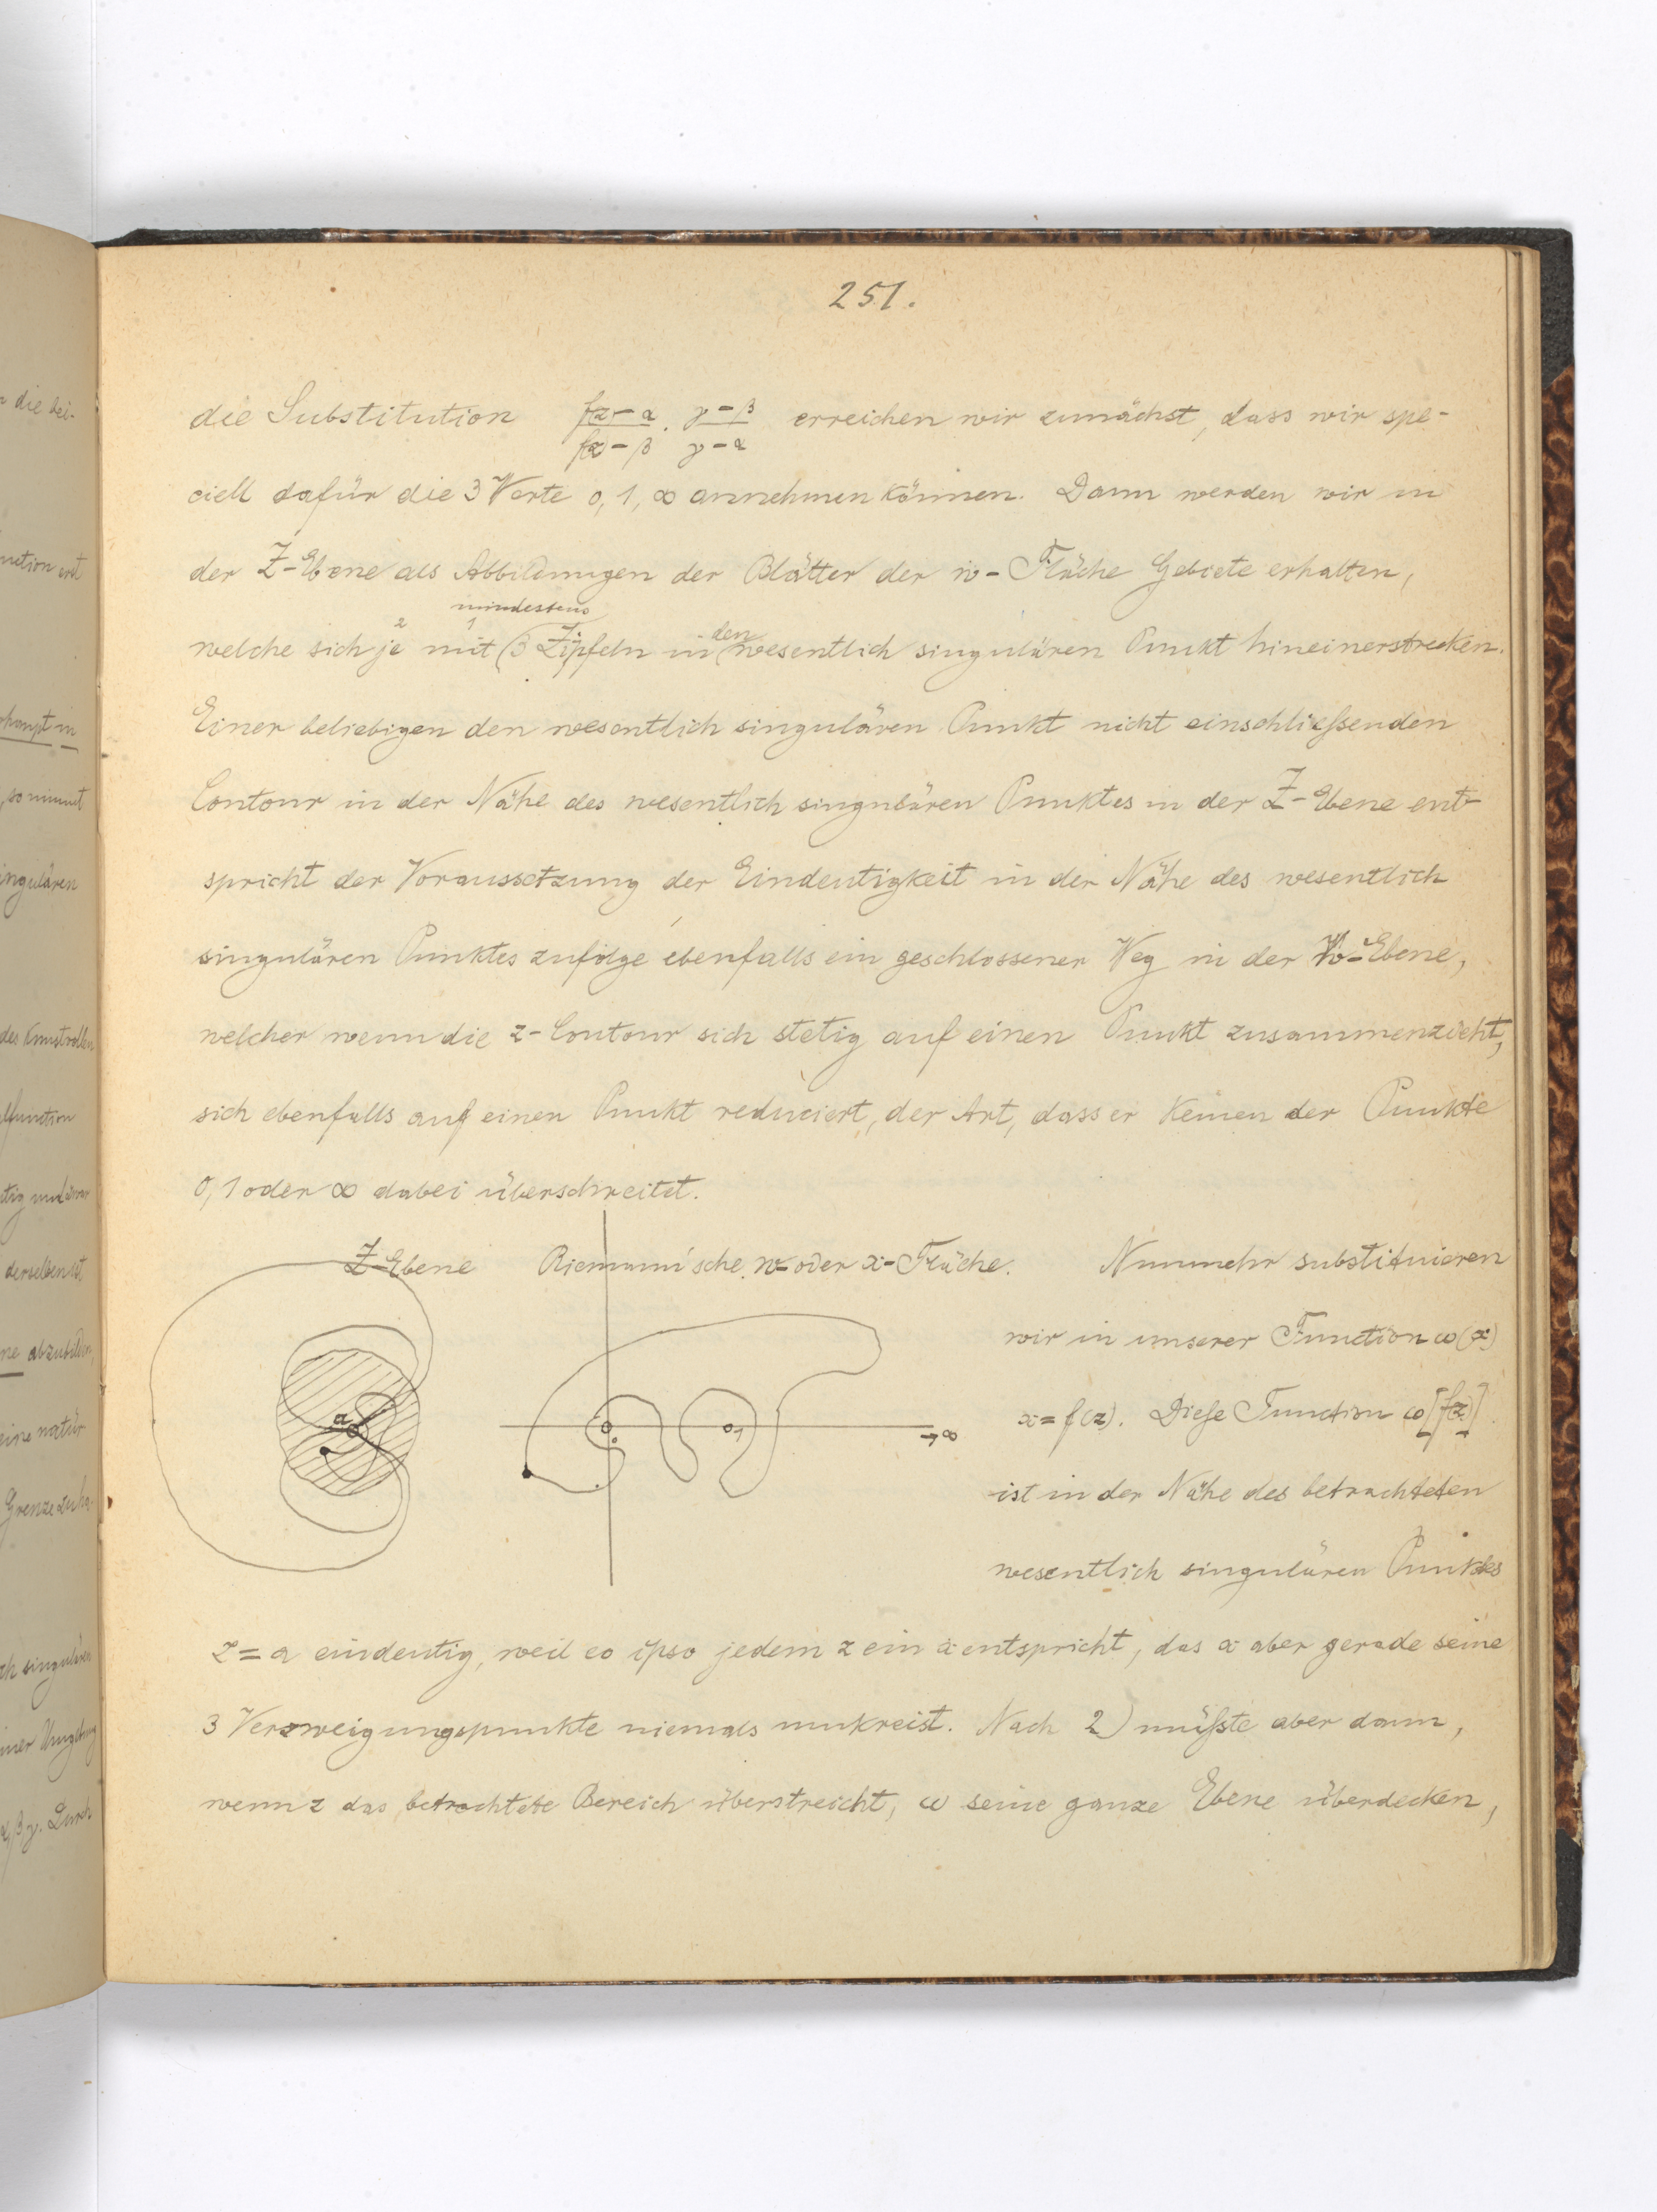 251.
die Substitution f(z)-α/f(z)-β · γ-β/γ-α erreichen wir zunächst, dass wir spe-
ciell dafür die 3 Werte 0, 1, ∞ annehmen können. Dann werden wir in
der Z-Ebene als Abbildungen der Blätter der w-Fläche Gebiete erhalten,
mindestens
welche sich je mit 3 Zipfeln in den wesentlich singulären Punkt hineinerstrecken.
Einer beliebigen den wesentlich singulären Punkt nicht einschließenden
Contour in der Nähe des wesentlich singulären Punktes in der Z-Ebene ent-
spricht der Voraussetzung der Eindeutigkeit in der Nähe des wesentlich
singulären Punktes zufolge ebenfalls ein geschlossener Weg in der W-Ebene,
welcher wenn die z-Contour sich stetig auf einen Punkt zusammenzieht,
sich ebenfalls auf einen Punkt reduciert, der Art, dass er keinen der Punkte
0, 1 oder ∞ dabei überschreitet.
Z-Ebene Riemann'sche w- oder x-Fläche.
a
0
1
→∞
Nunmehr substituieren
wir in unserer Function ω(x)
x = f(z). Diese Function ω[f(z)]
ist in der Nähe des betrachteten
wesentlich singulären Punktes
z = a eindeutig, weil eo ipso jedem z ein x entspricht, das x aber gerade seine
3 Verzweigungspunkte niemals umkreist. Nach 2) müßte aber dann,
wenn z das betrachtete Bereich überstreicht, ω seine ganze Ebene überdecken,
n die bei-
singulären
derselben ist,
abzubilden,
eine natür
Grenze zu ha-
α, β, γ. Durch